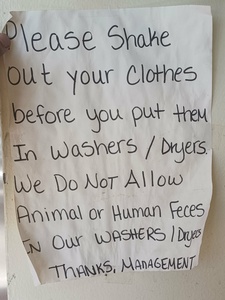 Please Shake
out your Clothes
before you put them
In Washers / Dryers.
We Do NOT Allow
Animal or Human Feces
In Our WASHERS / Dryers
THANKS, MANAGEMENT